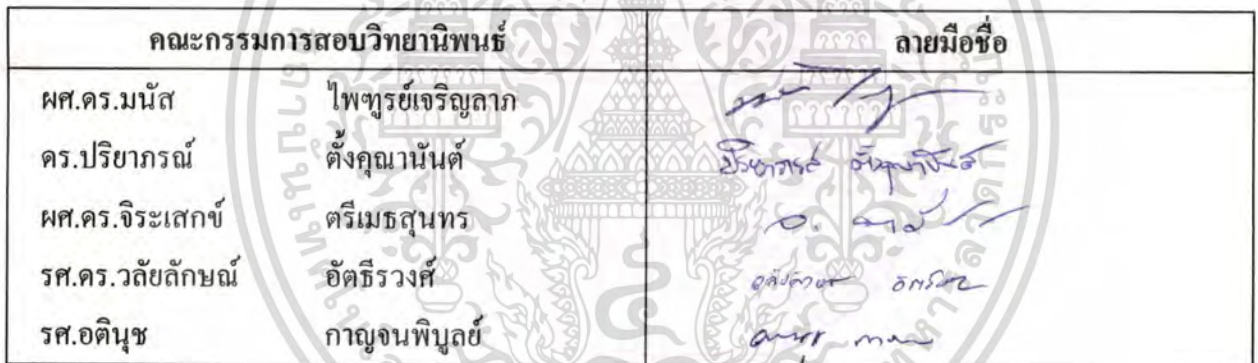 คณะกรรมการสอบวิทยานิพนธ์ ลายมือชื่อ
ผศ.ดร.มนัส ไพฑูรย์เจริญลาภ
ดร.ปริยาภรณ์ ตั้งคุณานันต์ ปริยาภรณ์ ตั้งคุณานันต์
ผศ.ดร.จิระเสกข์ ตรีเมธสุนทร
รศ.ดร.วลัยลักษณ์ อัตธีรวงศ์
รศ.อตินุช กาญจนพิบูลย์